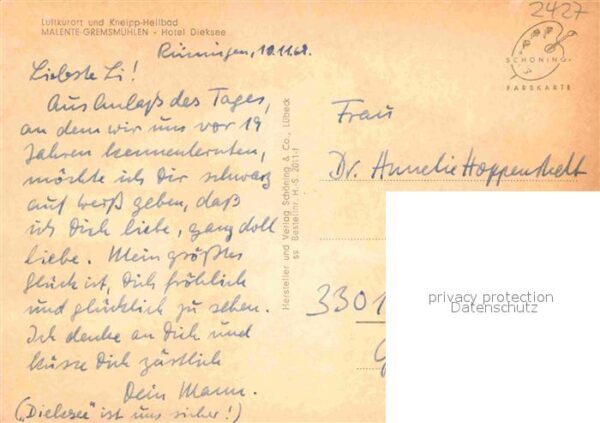 Luftkurort und Kneipp-Heilbad
MALENTE-GREMSMÜHLEN - Hotel Dieksee
2427
SCHÖNING
FARBKARTE
Rünningen, 10.11.62.
Liebste Li!
Aus Anlaß des Tages,
an dem wir uns vor 19
Jahren kennenlernten,
möchte ich Dir schwarz
auf weiß geben, daß
ich Dich liebe, ganz doll
liebe. Mein größtes
Glück ist, Dich fröhlich
und glücklich zu sehen.
Ich denke an Dich und
küsse Dich zärtlich
Dein Mann.
("Dieksee" ist uns sicher!)
Hersteller und Verlag Schöning & Co., Lübeck
ss Bestellnr. H.-S. 2011-f
Frau
Dr. Annelie Hoppenstedt
3301
privacy protection
Datenschutz